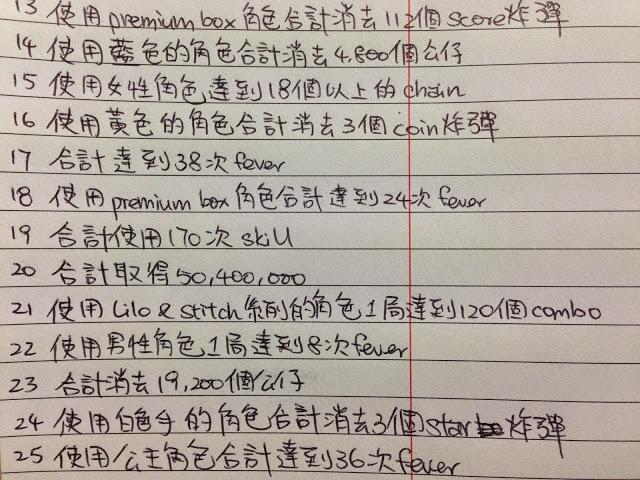 13 使用premium box角色合計消去112個score炸彈
14 使用藍色的角色合計消去4,800個公仔
15 使用女性角色達到18個以上的chain
16 使用黃色的角色合計消去3個coin炸彈
17 合計達到38次fever
18 使用premium box角色合計達到24次fever
19 合計使用170次skill
20 合計取得50,400,000
21 使用Lilo & Stitch系列的角色1局達到120個combo
22 使用男性角色1局達到8次fever
23 合計消去19,200個公仔
24 使用白色手的角色合計消去3個star炸彈
25 使用公主角色合計達到36次fever